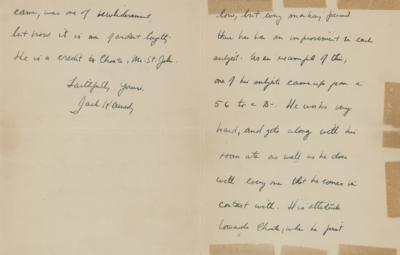 low, but every marking period
there has been an improvement in each
subject. As an example of this,
one of his subjects came up from a
56 to a B-. He works very
hard, and gets along with his
room ate as well as he does
with every one that he comes in
contact with. His attitude
towards Choate, when he first
came, was one of bewilderment,
but now it is one of ardent loyalty.
He is a credit to Choate, Mr. St. John.
Faithfully Yours,
Jack Kennedy